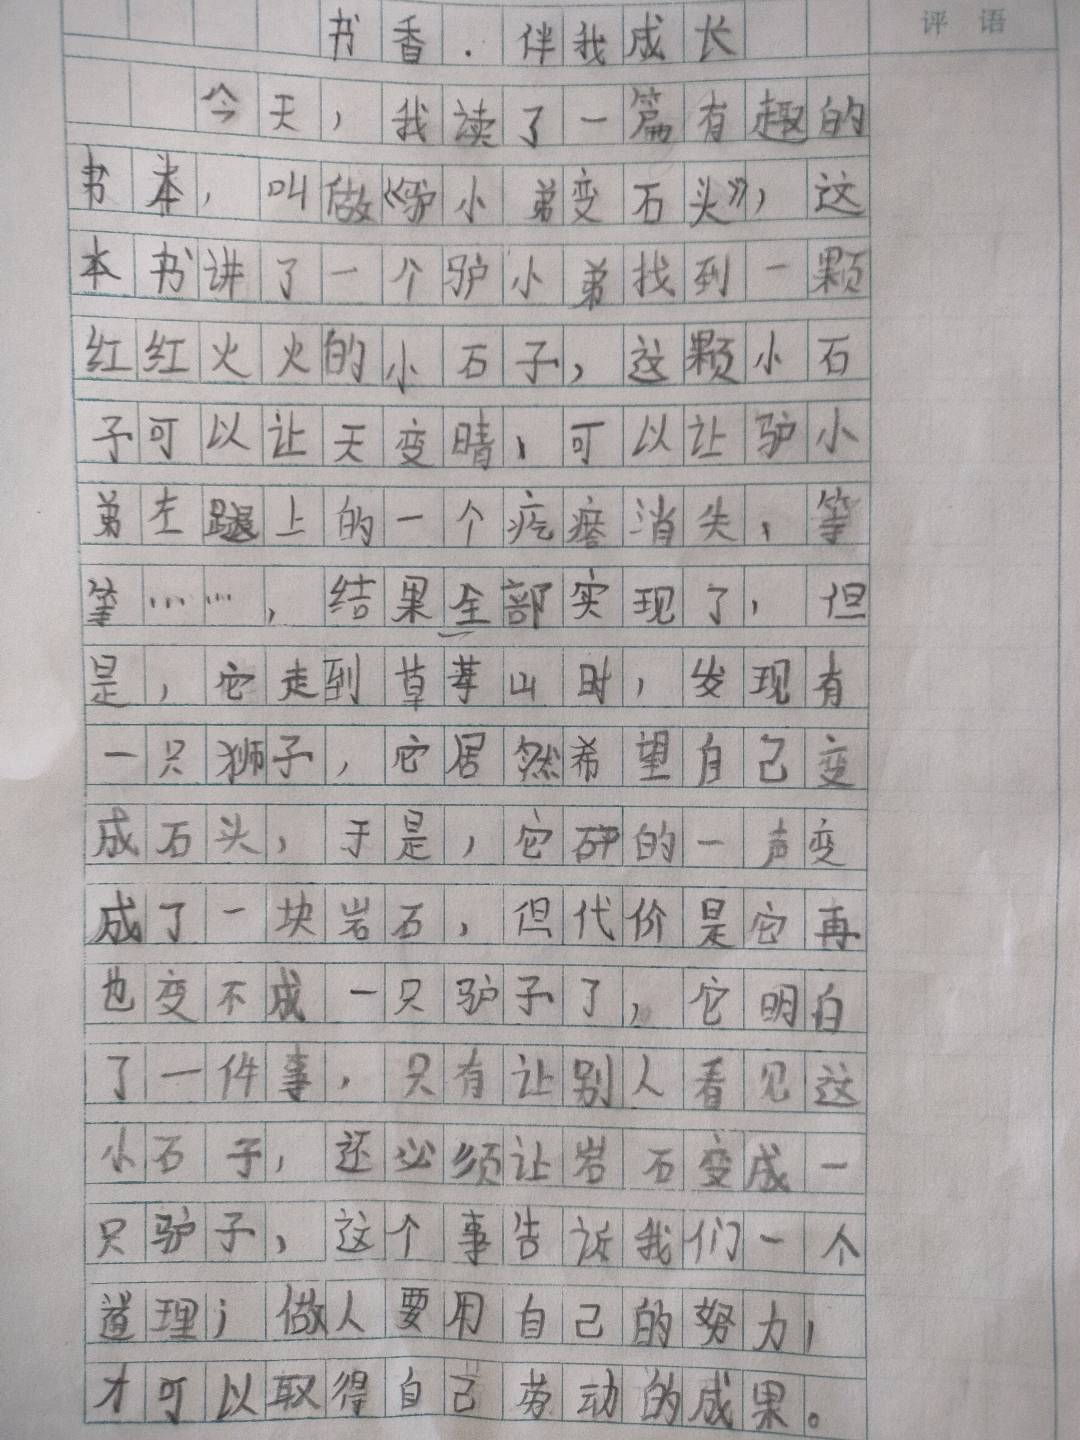 评 语
书香.伴我成长
今天，我读了一篇有趣的
书本，叫做《驴小弟变石头》，这
本书讲了一个驴小弟找到一颗
红红火火的小石子，这颗小石
子可以让天变晴，可以让驴小
弟左腿上的一个疙瘩消失，等
等……，结果全部实现了，但
是，它走到草莓山时，发现有
一只狮子，它居然希望自己变
成石头，于是，它砰的一声变
成了一块岩石，但代价是它再
也变不成一只驴子了，它明白
了一件事，只有让别人看见这
小石子，还必须让岩石变成一
只驴子，这个事告诉我们一个
道理；做人要用自己的努力，
才可以取得自己劳动的成果。